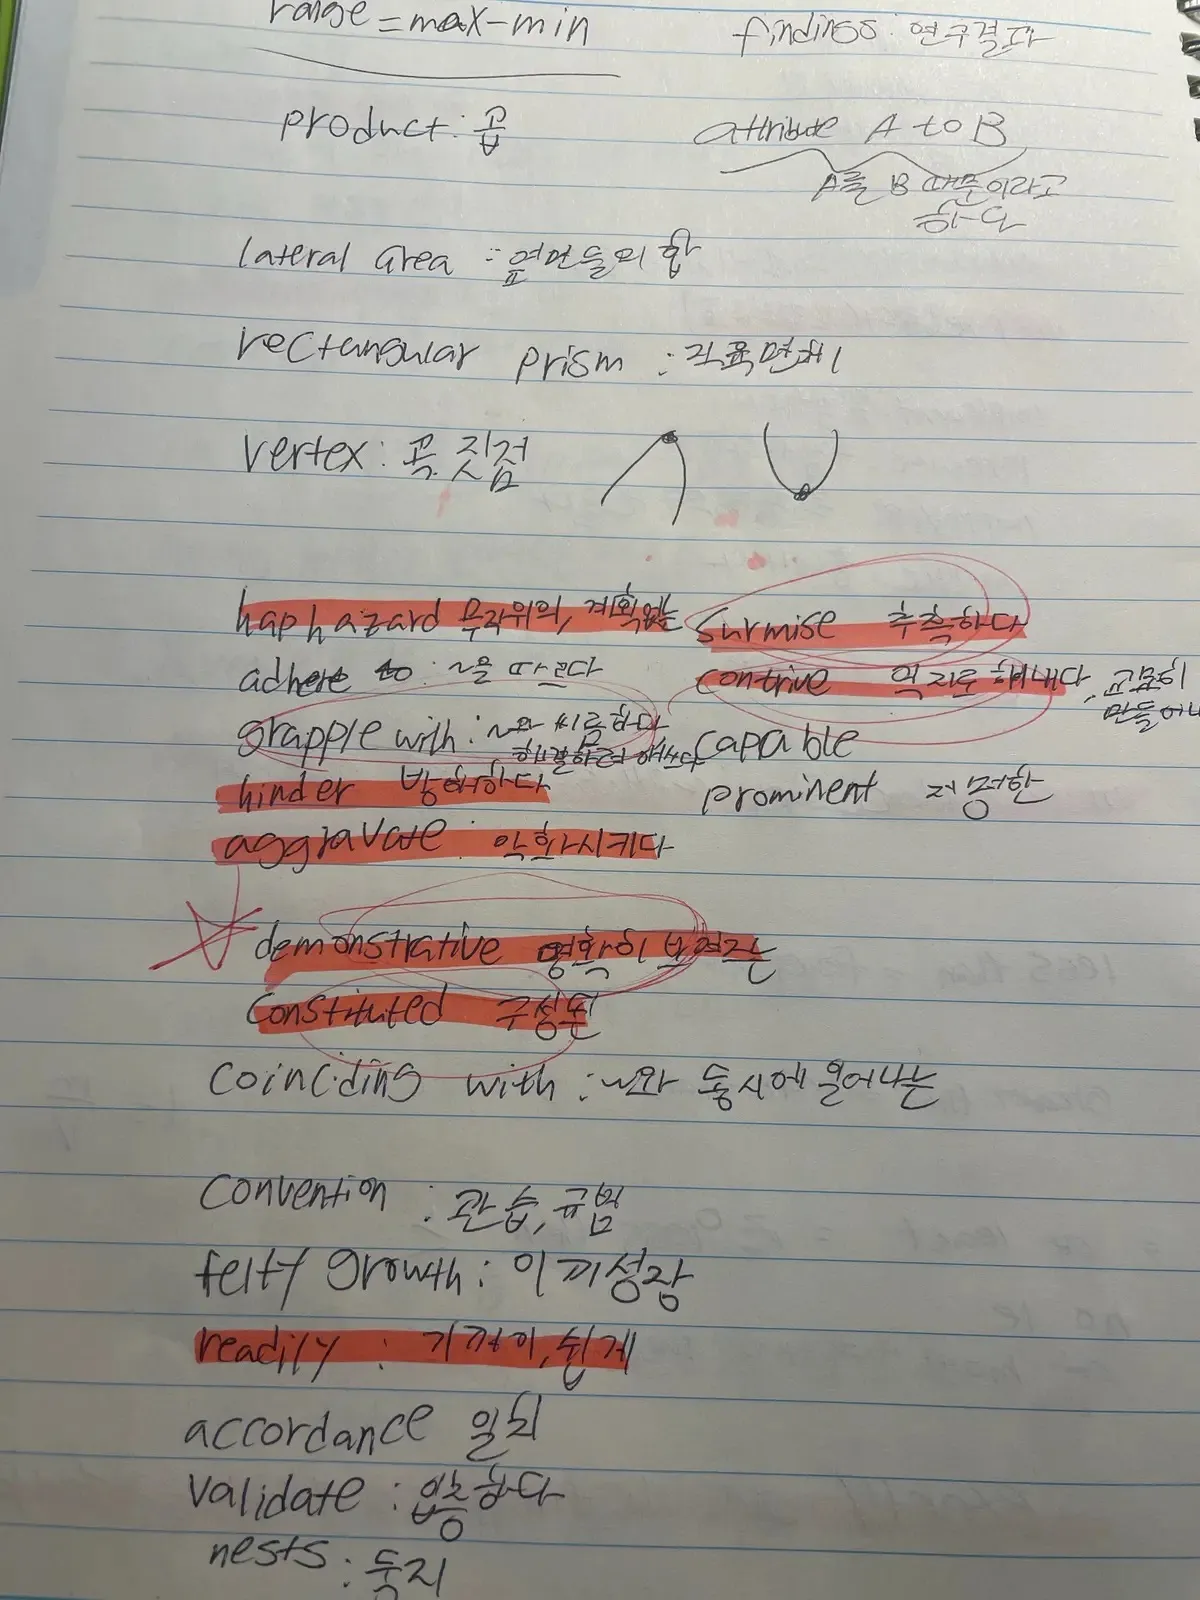 range = max - min
findings: 연구결과
product: 곱
attribute A to B
A를 B 때문이라고
하다
lateral area : 옆면들의 합
rectangular prism : 직육면체
vertex: 꼭짓점
haphazard 무작위의, 계획없는
surmise 추측하다
adhere to : ~을 따르다
contrive 억지로 해내다, 교묘히
만들어내
grapple with : ~와 씨름하다
해결하려 애쓰다
capable
hinder 방해하다
prominent 저명한
aggravate : 악화시키다
demonstrative 명확히 보여지는
constituted 구성된
coinciding with : ~와 동시에 일어나는
convention : 관습, 규범
felty growth : 이끼성장
readily : 기꺼이, 쉽게
accordance 일치
validate : 입증하다
nests : 둥지